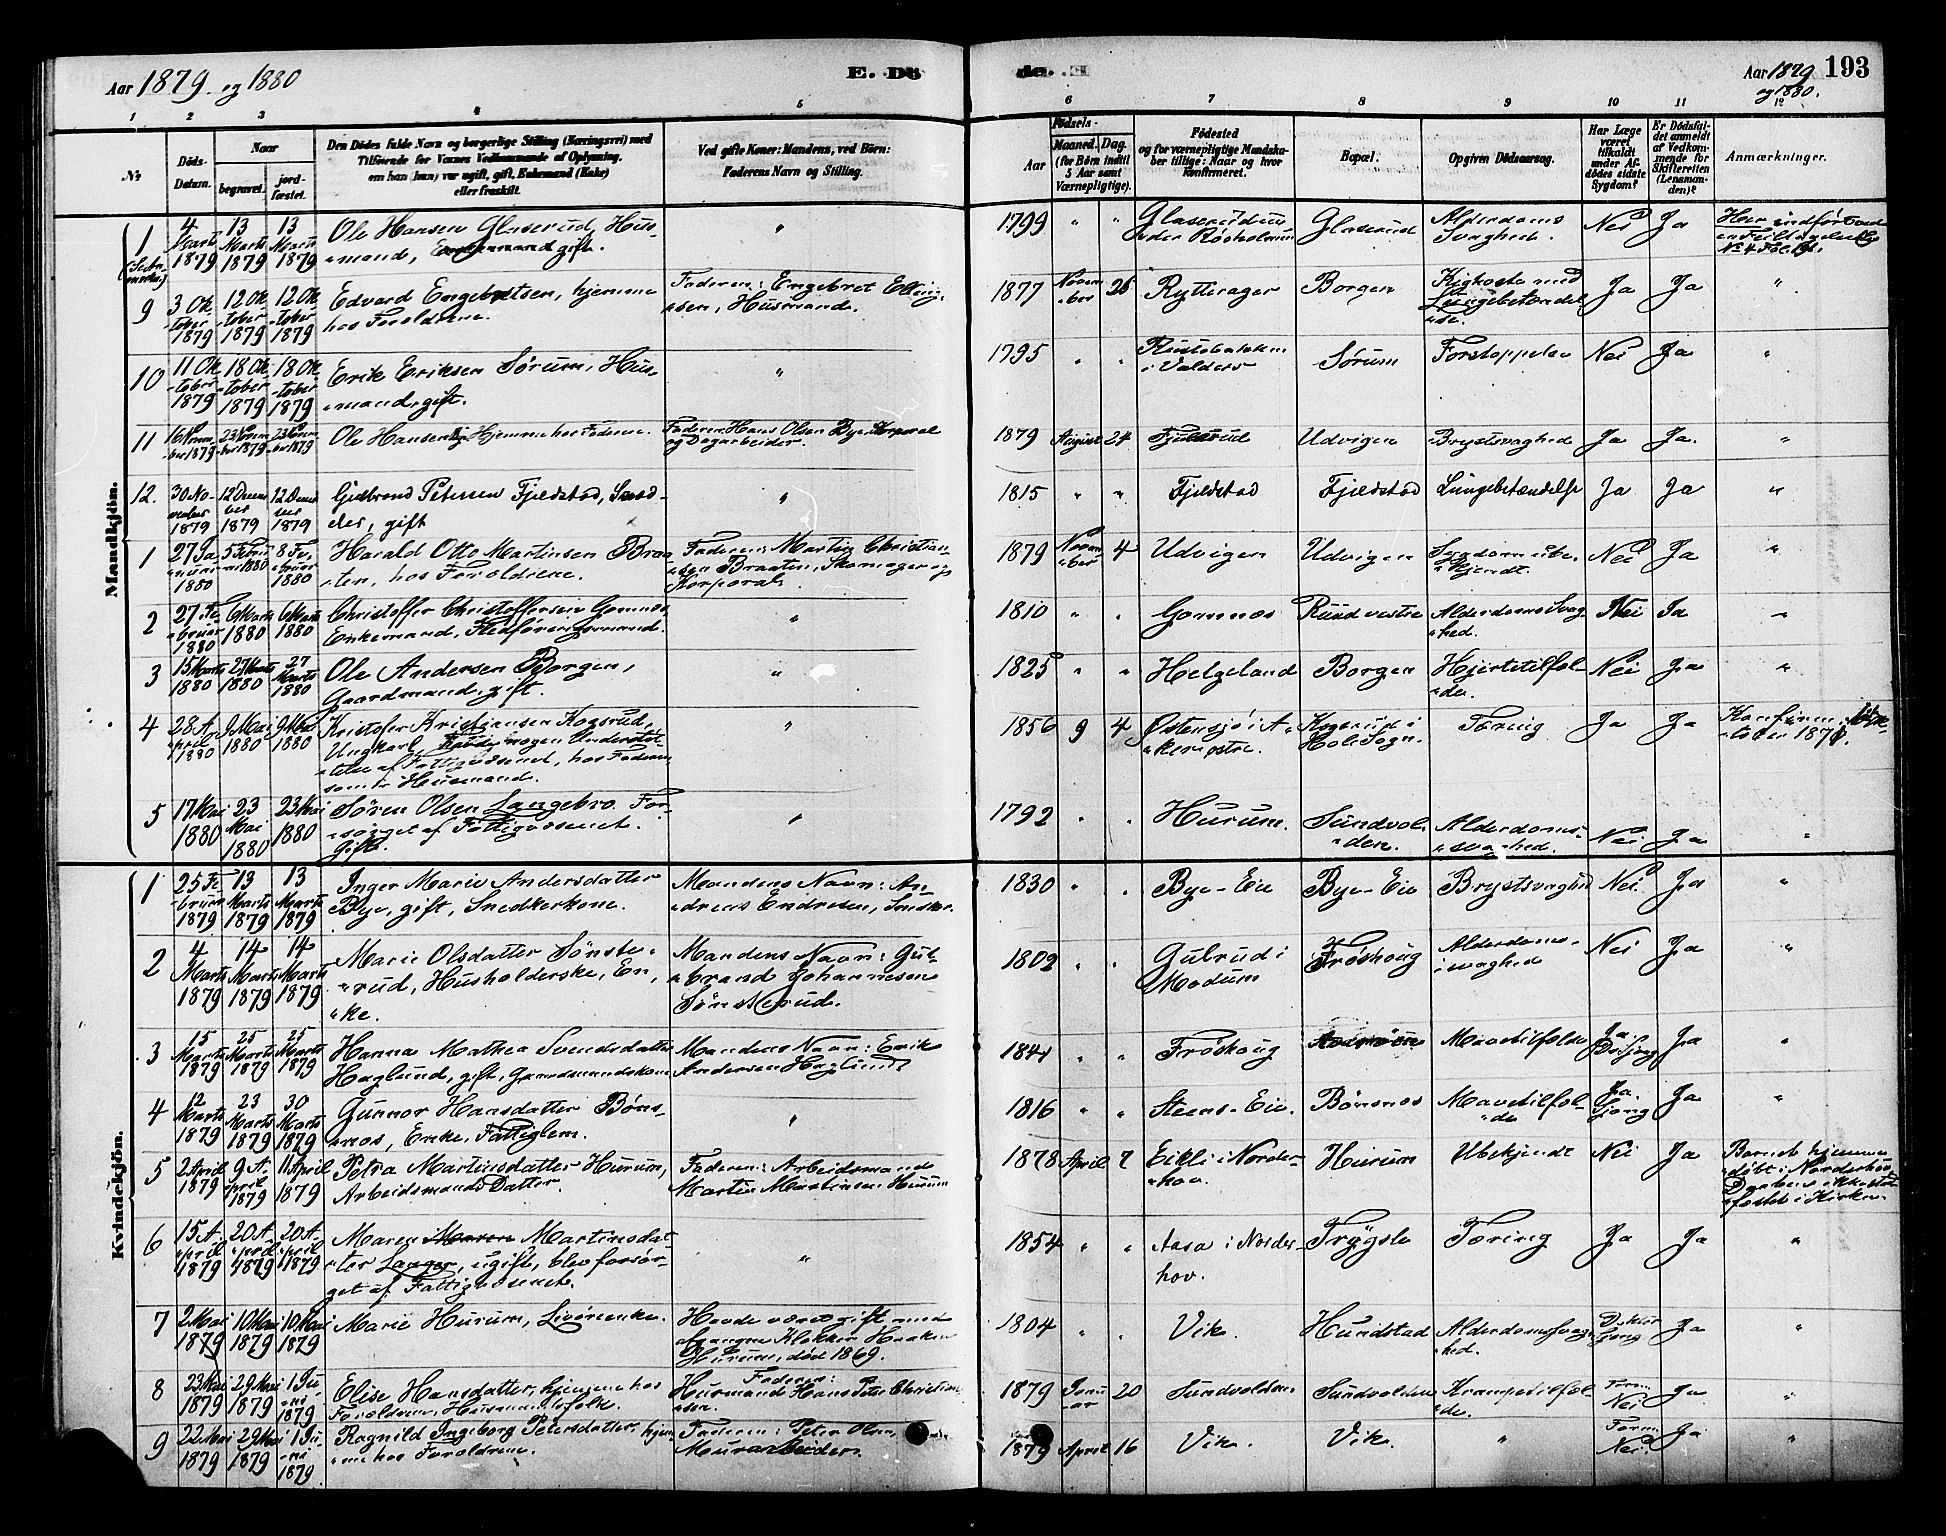 Aar 1879 og 1880
E. Dö
de. E
Aar 1879 og 1880.
193
1 2 3 4 5 6 7 8 9 10 11 12
No
Döds-Datum.
Naar
begravet.
jordfæstet.
Den Dödes fulde Navn og borgerlige Stilling (Næringsvei) med
Tilföiende for Voxnes Vedkommende af Oplysning,
om han (hun) var ugift, gift, Enkemand (Enke)
eller fraskilt.
Ved gifte Koner: Mandens, ved Börn:
Faderens Navn og Stilling.
Aar
Födsels-
Maaned. Dag.
(for Börn indtil
5 Aar samt
Værnepligtige).
Födested
og for værnepligtige Mandskaber tillige: Naar og hvor
konfirmeret.
Bopæl.
Opgiven Dödsaarsag.
Har Læge
været
tilkaldt
under Afdödes sidste
Sygdom?
Er Dödsfaldet anmeldt
af Vedkommende for
Skifteretten
(Lensmanden)?
Anmærkninger.
Mandkjön.
1 4 Marts 1879 13 Marts 1879 13 Marts 1879 Ole Hansen Glaserud, Husmand, gift. " 1799 " " Glaserud Glaserud Alderdoms Svaghed. Nei Ja Her indført
9 3 Oktober 1879 12 Oktober 1879 12 Oktober 1879 Edvard Engebretsen, hjemme hos Forældrene. Faderen: Engebret Ellingsen, Husmand. 1877 November 26 Rytterager Borgen Kighoste med Lungebetændelse. Ja Ja "
10 11 Oktober 1879 18 Oktober 1879 18 Oktober 1879 Erik Eriksen Sørum, Husmand, gift. " 1795 " " i Valders Sørum Forstoppelse Nei Ja "
11 16 November 1879 23 November 1879 23 November 1879 Ole Hansen Hjemme hos Faderen. Faderen: Hans Olsen Bye Korporal og Dagarbeider. 1879 August 24 Fjulsrud Udvigen Brystsvaghed Ja Ja. "
12. 30 November 1879 12 December 1879 12 December 1879 Gudbrand Petersen Fjeldstad, gift " 1815 " " Fjeldstad Fjeldstad Lungebetændelse Ja Ja "
1 27 Januar 1880 5 Februar 1880 8 Februar 1880 Harald Otto Martinsen Braaten, hos Forældrene. Faderen: Martin Christiansen Braaten, Skomager og Korporal. 1879 November 4 Udvigen Udvigen Sygdom ubekjendt. Nei Ja "
2 27 Februar 1880 6 Marts 1880 6 Marts 1880 Christoffer Christoffersen Gomnæs, Enkemand, Fledføringsmand. " 1810 " " Gomnæs Ruud vestre Alderdoms Svaghed. Nei Ja "
3 15 Marts 1880 27 Marts 1880 27 Marts 1880 Ole Andersen Borgen, Gaardmand, gift. " 1825 " " Helgeland Borgen Hjertetilfælde. Nei Ja "
4 28 April 1880 9 Mai 1880 9 Mai 1880 Kristofer Kristiansen Kogsrud, Ungkarl, nogen Understøttelse af Fattigvæsenet, hos Faderen som er Husmand. " 1856 9 4 Østensjø i Aker Kogsrud i Hole Sogn. Tæring Ja Ja Konfirm.
5 17 Mai 1880 23 Mai 1880 23 Mai 1880 Søren Olsen Langebro. Forsørget af Fattigvæsenet. Gift. " 1792 " " Hurum. Sundvolden. Alderdomssvaghed. Nei Ja "
Kvindekjön.
1 25 Februar 1879 13 Marts 1879 13 Marts 1879 Inger Marie Andersdatter Bye, gift, Snedkerkone. Mandens Navn: Andreas Endresen, Snedker. 1830 " " Bye-Eie Bye-Eie Brystsvaghed Nei Ja "
2 4 Marts 1879 14 Marts 1879 14 Marts 1879 Marie Olsdatter Sønsterud, Husholderske, Enke. Mandens Navn: Gulbrand Johannesen Sønsterud. 1802 " " Gulrud i Modum Frøshoug Alderdomssvaghed Nei Ja "
3 15 Marts 1879 25 Marts 1879 25 Marts 1879 Hanna Mathea Svendsdatter Haglund, gift, Gaardmandskone Mandens Navn: Erik Andersen Haglund 1841 " " Frøshoug Mavetilfælde Ja Ja "
4 12 Marts 1879 23 Marts 1879 30 Marts 1879 Gunnor Hansdatter Bønsnæs, Enke, Fattiglem. " 1816 " " Steens-Eie. Bønsnæs Mavetilfælde Ja. Ja "
5 2 April 1879 9 April 1879 11 April 1879 Petra Martinsdatter Hurum, Arbeidsmands Datter. Faderen: Arbeidsmand Martin Martinsen Hurum 1878 April 7 Eikli i Norderhov Hurum Ubekjendt Nei Ja Barnet hjemmedøbt i Norderhov, Daaben ikke stadfæstet i Kirken.
6 15 April 1879 20 April 1879 20 April 1879 Maren Martinsdatter Langøe, ugift, blev forsørget af Fattigvæsenet. " 1854 " " Aasa i Norderhov. Trøgsle Tæring Ja Ja "
7 2 Mai 1879 10 Mai 1879 10 Mai 1879 Marie Hurum, Livørenke. Havde været gift med afgangne Klokker Haaken Hurum, død 1869. 1804 " " Vik. Hundstad Alderdomssvaghed. Ja "
8 23 Mai 1879 29 Mai 1879 1 Juni 1879 Elise Hansdatter, hjemme hos Forældrene, Husmandsfolk. Faderen: Husmand Hans Peter Christiansen. 1879 Januar 20 Sundvolden Sundvolden Krampetilfælde. Nei Ja "
9 22 Mai 1879 29 Mai 1879 1 Juni 1879 Ragnild Ingeborg Petersdatter, hjemme hos Forældrene. Faderen: Peter Olsen, Murarbeider. 1879 April 16 Vik. Vik. " Nei. Ja "